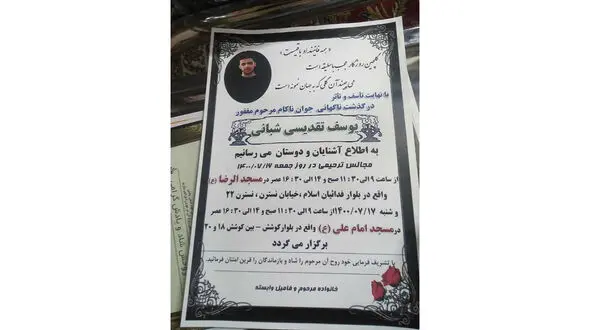 « همه فانیند او باقیست »
گلچین روزگار عجب با سلیقه است
می چیند آن گلی که به جهان نمونه است
با نهایت تاسف و تاثر
درگذشت ناگهانی جوان ناکام مرحوم مغفور
یوسف تقدیسی شبانی
به اطلاع آشنایان و دوستان می رسانیم
مجالس ترحیمی در روز جمعه ۱۴۰۰/۰۷/۱۶
از ساعت ۹ الی ۱۱:۳۰ صبح و ۱۴ الی ۱۶:۳۰ عصر در مسجد الرضا (ع)
واقع در بلوار فدائیان اسلام ،خیابان نسترن ، نسترن ۲۲
و شنبه ۱۴۰۰/۰۷/۱۷ از ساعت ۹ الی ۱۱:۳۰ صبح و ۱۴ الی ۱۶:۳۰ عصر
در مسجد امام علی (ع) واقع در بلوار کوشش - بین کوشش ۱۸ و ۲۰
برگزار می گردد
با تشریف فرمایی خود روح آن مرحوم را شاد و بازماندگان را قرین امتنان فرمائید.
خانواده مرحوم و فامیل وابسته